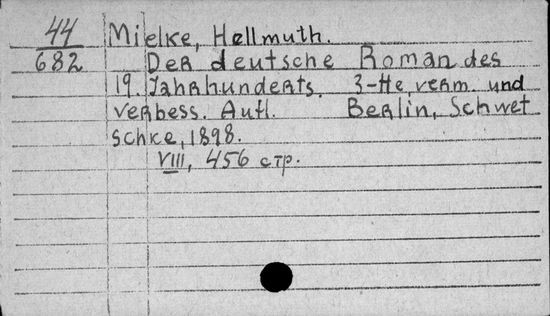 44 Mielke, Hellmuth.
682 Der deutsche Roman des
19. Jahrhunderts. 3-te, verm. und
verbess. Aufl. Berlin, Schwet
schke, 1898.
VIII, 456 стр.